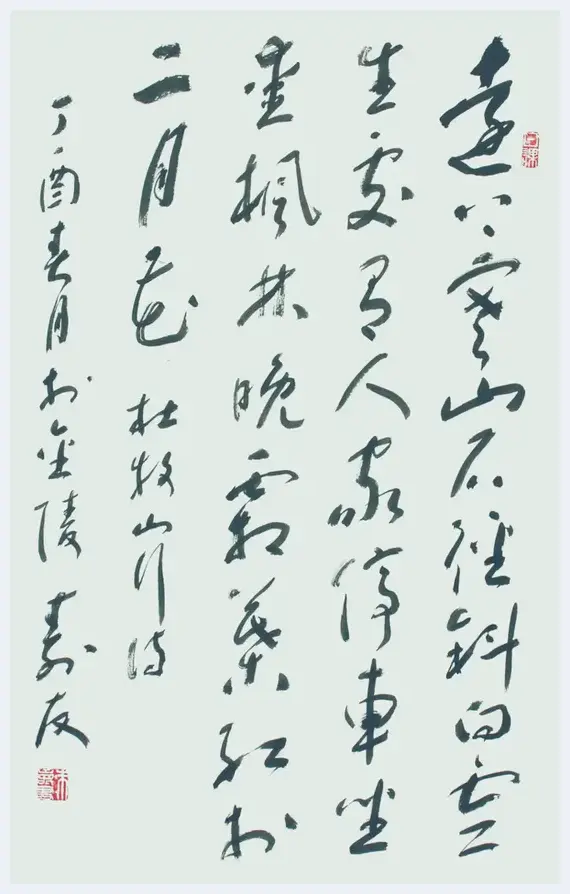 遠上寒山石徑斜白雲
生處有人家停車坐
愛楓林晚霜葉紅於
二月花 杜牧山行詩
丁酉春月於金陵 壽友